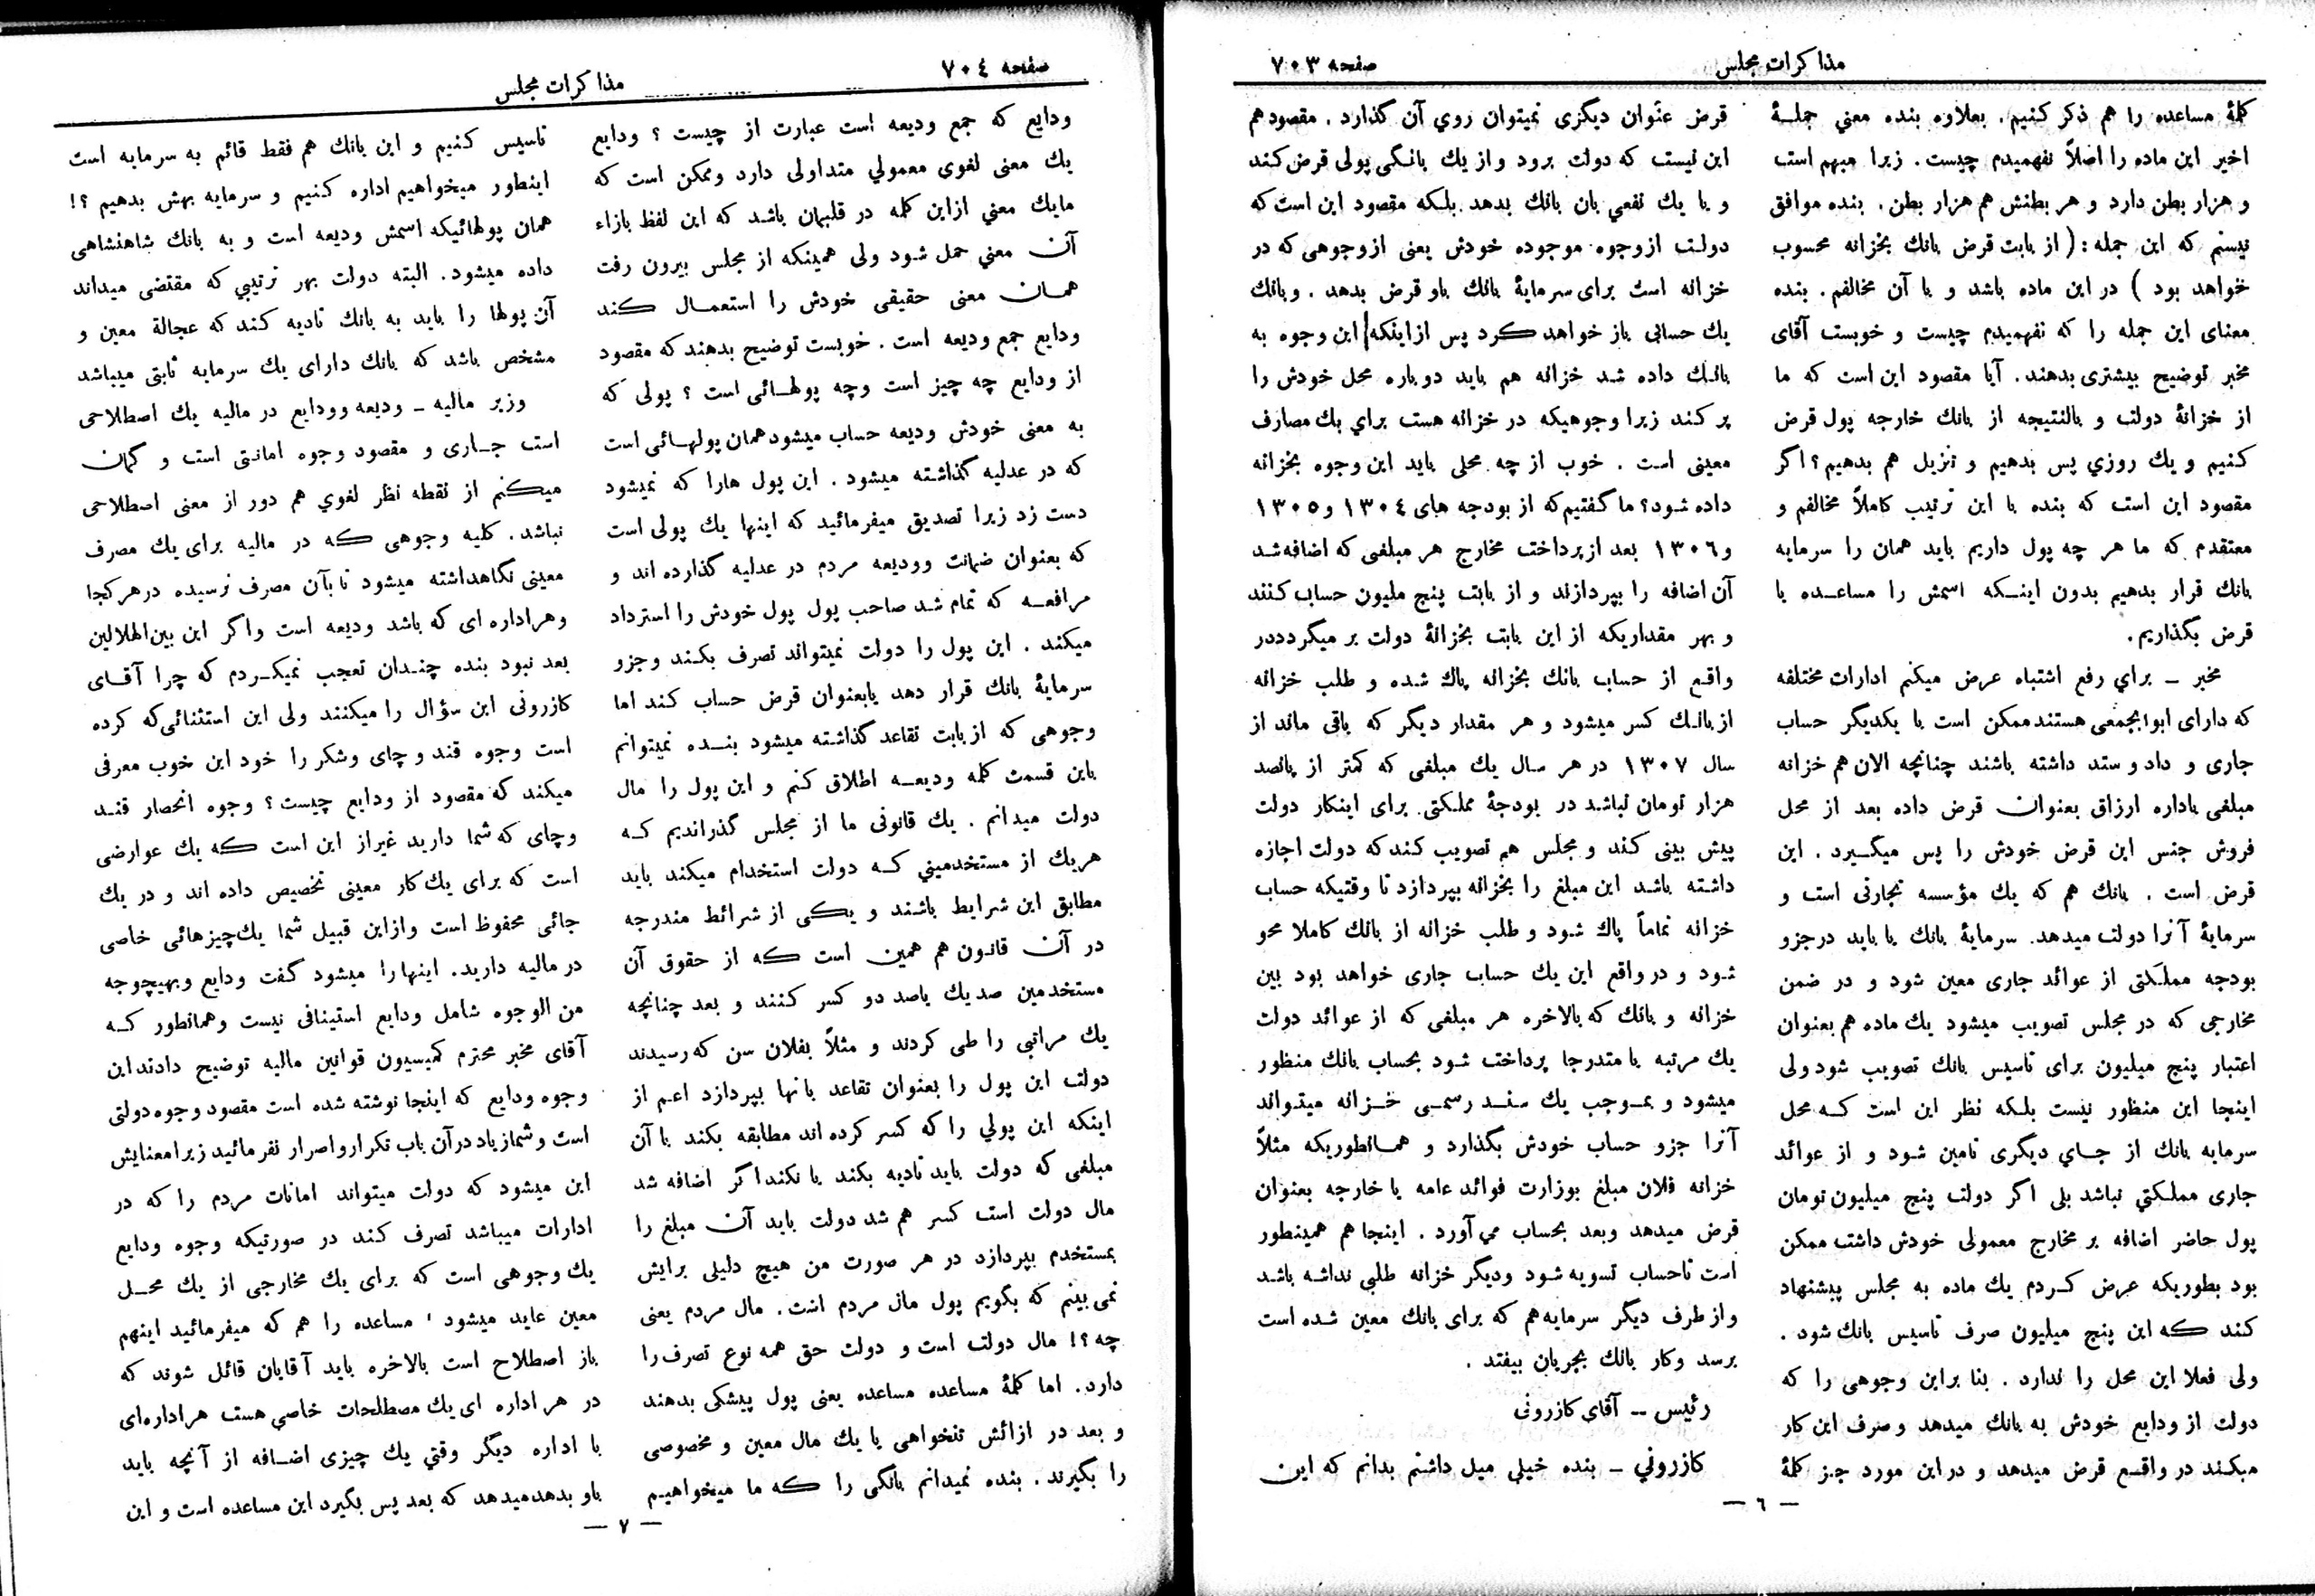 مذاکرات مجلس
صفحه ۷۰۳
کلمهٔ مساعده را هم ذکر کنیم. بعلاوه بنده معني جملــهٔ
اخیر این ماده را اصلاً نفهمیدم چیست. زیرا مبهم است
و هزار بطن دارد و هر بطنش هم هزار بطن. بنده موافق
نیستم که این جمله: (از بابت قرض بانك بخزانه محسوب
خواهد بود) در این ماده باشد و با آن مخالفم. بنده
معنای این جمله را که نفهمیدم چیست و خوبست آقای
مخبر توضیح بیشتری بدهند. آیا مقصود این است که ما
از خزانهٔ دولت و بالنتیجه از بانك خارجه پول قرض
کنیم و یك روزي پس بدهیم و تنزیل هم بدهیم؟ اگر
مقصود این است که بنده با این ترتیب کاملاً مخالفم و
معتقدم که ما هر چه پول داریم باید همان را سرمایه
بانك قرار بدهیم بدون اینــکه اسمش را مساعــده یا
قرض بگذاریم.
مخبر ــ براي رفع اشتباه عرض میکنم ادارات مختلفه
که دارای ابوابجمعی هستند ممکن است با یکدیگر حساب
جاری و داد و ستد داشته باشند چنانچه الان هم خزانه
مبلغی باداره ارزاق بعنوان قرض داده بعد از محل
فروش جنس این قرض خودش را پس میگــیرد. این
قرض است. بانك هم که یك مؤسسه تجارتی است و
سرمایهٔ آنرا دولت میدهد. سرمایهٔ بانك یا باید درجزو
بودجه مملکتی از عوائد جاری معین شود و در ضمن
مخارجی که در مجلس تصویب میشود یك ماده هم بعنوان
اعتبار پنج میلیون برای تاسیس بانك تصویب شود ولی
اینجا این منظور نیست بلـکه نظر این است کــه محل
سرمایه بانك از جــاي دیگری تامین شود و از عوائد
جاری مملـکتي نباشد بلی اگر دولت پنج میلیون تومان
پول حاضر اضافه بر مخارج معمولی خودش داشت ممکن
بود بطوریکه عرض کــردم یك ماده به مجلس پیشنهاد
کند که این پنج میلیون صرف تاسیس بانك شود.
ولی فعلا این محل را ندارد. بنا براین وجوهی را که
دولت از ودایع خودش به بانك میدهد و صرف این کار
میکـند در واقــع قرض میدهد و در این مورد جـز کلمهٔ
قرض عنوان دیگری نمیتوان روي آن گذارد. مقصود هم
این نیست که دولت برود و از یك بانـگی پولی قرض کند
و با یك نفعي بان بانك بدهد. بلـکه مقصود این است که
دولـت از وجوه موجوده خودش یعنی از وجوهی که در
خزانه است برای سرمایهٔ بانك باو قرض بدهد. و بانك
یك حسابی باز خواهد کرد پس از اینکه این وجوه به
بانـك داده شـد خزانه هم باید دوباره محل خودش را
پر کند زیرا وجوهیکه در خزانه هست براي یك مصارف
معینی است. خوب از چه محلی باید این وجوه بخزانه
داده شود؟ ما گفتیم که از بودجه های ۱۳۰٤ و ۱۳۰۵
و ۱۳۰٦ بعد از پرداخت مخارج هر مبلغی که اضافه شد
آن اضافه را بپردازند و از بابت پنج ملیون حساب کنند
و بهر مقداریکه از این بابت بخزانهٔ دولت بر میگردددر
واقـع از حساب بانك بخزانه پاك شده و طلب خزانه
از بانـك کسر میشود و هر مقدار دیگر که باقی ماند از
سال ۱۳۰۷ در هر سال یك مبلغی که کمتر از پانصد
هزار تومان نباشد در بودجهٔ مملـکتی برای اینکار دولت
پیش بینی کند و مجلس هم تصویب کند که دولت اجازه
داشته باشد این مبلغ را بخزانه بپردازد تا وقتیکه حساب
خزانه تماماً پاك شود و طلب خزانه از بانك کاملا محو
شود و در واقع این یك حساب جاری خواهد بود بین
خزانه و بانك که بالاخره هر مبلغی که از عوائد دولت
یك مرتبه یا متدرجا پرداخت شود بحساب بانك منظور
میشود و بمــوجب یك سنــد رسمــی خــزانه میتواند
آنرا جزو حساب خودش بگذارد و همــانطوریکه مثلاً
خزانه فلان مبلغ بوزارت فوائد عامه یا خارجه بعنوان
قرض میدهد وبعد بحساب می آورد. اینجا هم همینطور
است تا حساب تسویه شود ودیگر خزانه طلبي نداشه باشد
و از طرف دیگر سرمایه هم که برای بانك معین شده است
برسد وکار بانك بجریان بیفتد.
رئیس ــ آقای کازرونی
کازروني ــ بنده خیلی میل داشتم بدانم که این
ــ ٦ ــ
صفحه ۷۰٤
مذاکرات مجلس
ودایع که جمع ودیعه است عبارت از چیست؟ ودایع
یك معنی لغوی معمولي متداولی دارد وممکن است که
مایك معني ازاین کلمه در قلبمان باشد که این لفظ بازاء
آن معني حمل شود ولی همینکه از مجلس بیرون رفت
همــان معنی حقیقی خودش را استعمــال کند
ودایع جمع ودیعه است. خوبست توضیح بدهند که مقصود
از ودایع چه چیز است وچه پولهــائی است؟ پولی که
به معنی خودش ودیعه حساب میشود همان پولهــائی است
که در عدلیه گذاشته میشود. این پول هارا که نمیشود
دست زد زیرا تصدیق میفرمائید که اینها یك پولی است
که بعنوان ضمانت وودیعه مردم در عدلیه گذارده اند و
مرافعــه که تمام شد صاحب پول پول خودش را استرداد
میکند. این پول را دولت نمیتواند تصرف بکـند وجزو
سرمایهٔ بانك قرار دهد یابعنوان قرض حساب کند اما
وجوهی که از بابت تقاعد گذاشته میشود بنــده نمیتوانم
باین قسمت کلمه ودیعــه اطلاق کنم و این پول را مال
دولت میدانم. یك قانونی ما از مجلس گذراندیم کــه
هریك از مستخدمیني کــه دولت استخدام میکند باید
مطابق این شرایط باشند و یـکی از شرائط مندرجه
در آن قانون هم همین است که از حقوق آن
مستخدمین صد یك یاصد دو کسر کنند و بعد چنانچه
یك مراتبی را طی کردند و مثلاً بفلان سن که رسیدند
دولت این پول را بعنوان تقاعد بانها بپردازد اعم از
اینکه این پولي را که کسر کرده اند مطابقه بکند با آن
مبلغی که دولت باید تادیه بکند یا نکند اگر اضافه شد
مال دولت است کسر هم شد دولت باید آن مبلغ را
بمستخدم بپردازد در هر صورت من هیچ دلیلی برایش
نمی بینم که بگویم پول مال مردم است. مال مردم یعنی
چه؟! مال دولت است و دولت حق همه نوع تصرف را
دارد. اما کلمهٔ مساعده مساعده یعنی پول پیشکی بدهند
و بعد در ازائش تنخواهی یا یك مال معین و مخصوصی
را بگیرند. بنده نمیدانم بانگی را که ما میخواهیم
تاسیس کنیم و این بانك هم فقط قائم به سرمایه است
اینطور میخواهیم اداره کنیم و سرمایه بهش بدهیم؟!
همان پولهائیکه اسمش ودیعه است و به بانك شاهنشاهی
داده میشود. البته دولت بهر ترتیبي که مقتضی میداند
آن پولها را باید به بانك تادیه کند که عجالة معین و
مشخص باشد که بانك دارای یك سرمایه ثابتی میباشد
وزیر مالیه ــ ودیعه وودایع در مالیه یك اصطلاحی
است جــاری و مقصود وجوه امانتی است و گمان
میکنم از نقطه نظر لغوي هم دور از معنی اصطلاحی
نباشد. کلیه وجوهی که در مالیه برای یك مصرف
معینی نگاهداشته میشود تا بآن مصرف نرسیده در هرکجا
وهر اداره ای که باشد ودیعه است واگر این بین الهلالین
بعد نبود بنده چنــدان تعجب نمیکــردم که چرا آقــای
کازرونی این سؤال را میکنند ولی این استثنائی که کرده
است وجوه قند و چای وشکر را خود این خوب معرفی
میکند که مقصود از ودایع چیست؟ وجوه انحصار قنــد
وچای که شما دارید غیر از این است که یك عوارضی
است که برای یك کار معینی تخصیص داده اند و در یك
جائی محفوظ است وازاین قبیل شما یك چیزهائی خاصی
در مالیه دارید. اینها را میشود گفت ودایع وبهیچوجه
من الوجوه شامل ودایع استینافی نیست وهمانطور کــه
آقای مخبر محترم کمیسیون قوانین مالیه توضیح دادند این
وجوه ودایع که اینجا نوشته شده است مقصود وجوه دولتی
است و شما زیاد در آن باب تکرار واصرار نفرمائید زیرا معنایش
این میشود که دولت میتواند امانات مردم را که در
ادارات میباشد تصرف کند در صورتیکه وجوه ودایع
یك وجوهی است که برای یك مخارجی از یك محــل
معین عاید میشود ' مساعده را هم که میفرمائید اینهم
باز اصطلاح است بالاخره باید آقایان قائل شوند که
در هر اداره ای یك مصطلحات خاصي هست هر اداره ای
با اداره دیگر وقتي یك چیزی اضــافه از آنچه باید
باو بدهد میدهد که بعد پس بگیرد این مساعده است و این
ــ ۷ ــ